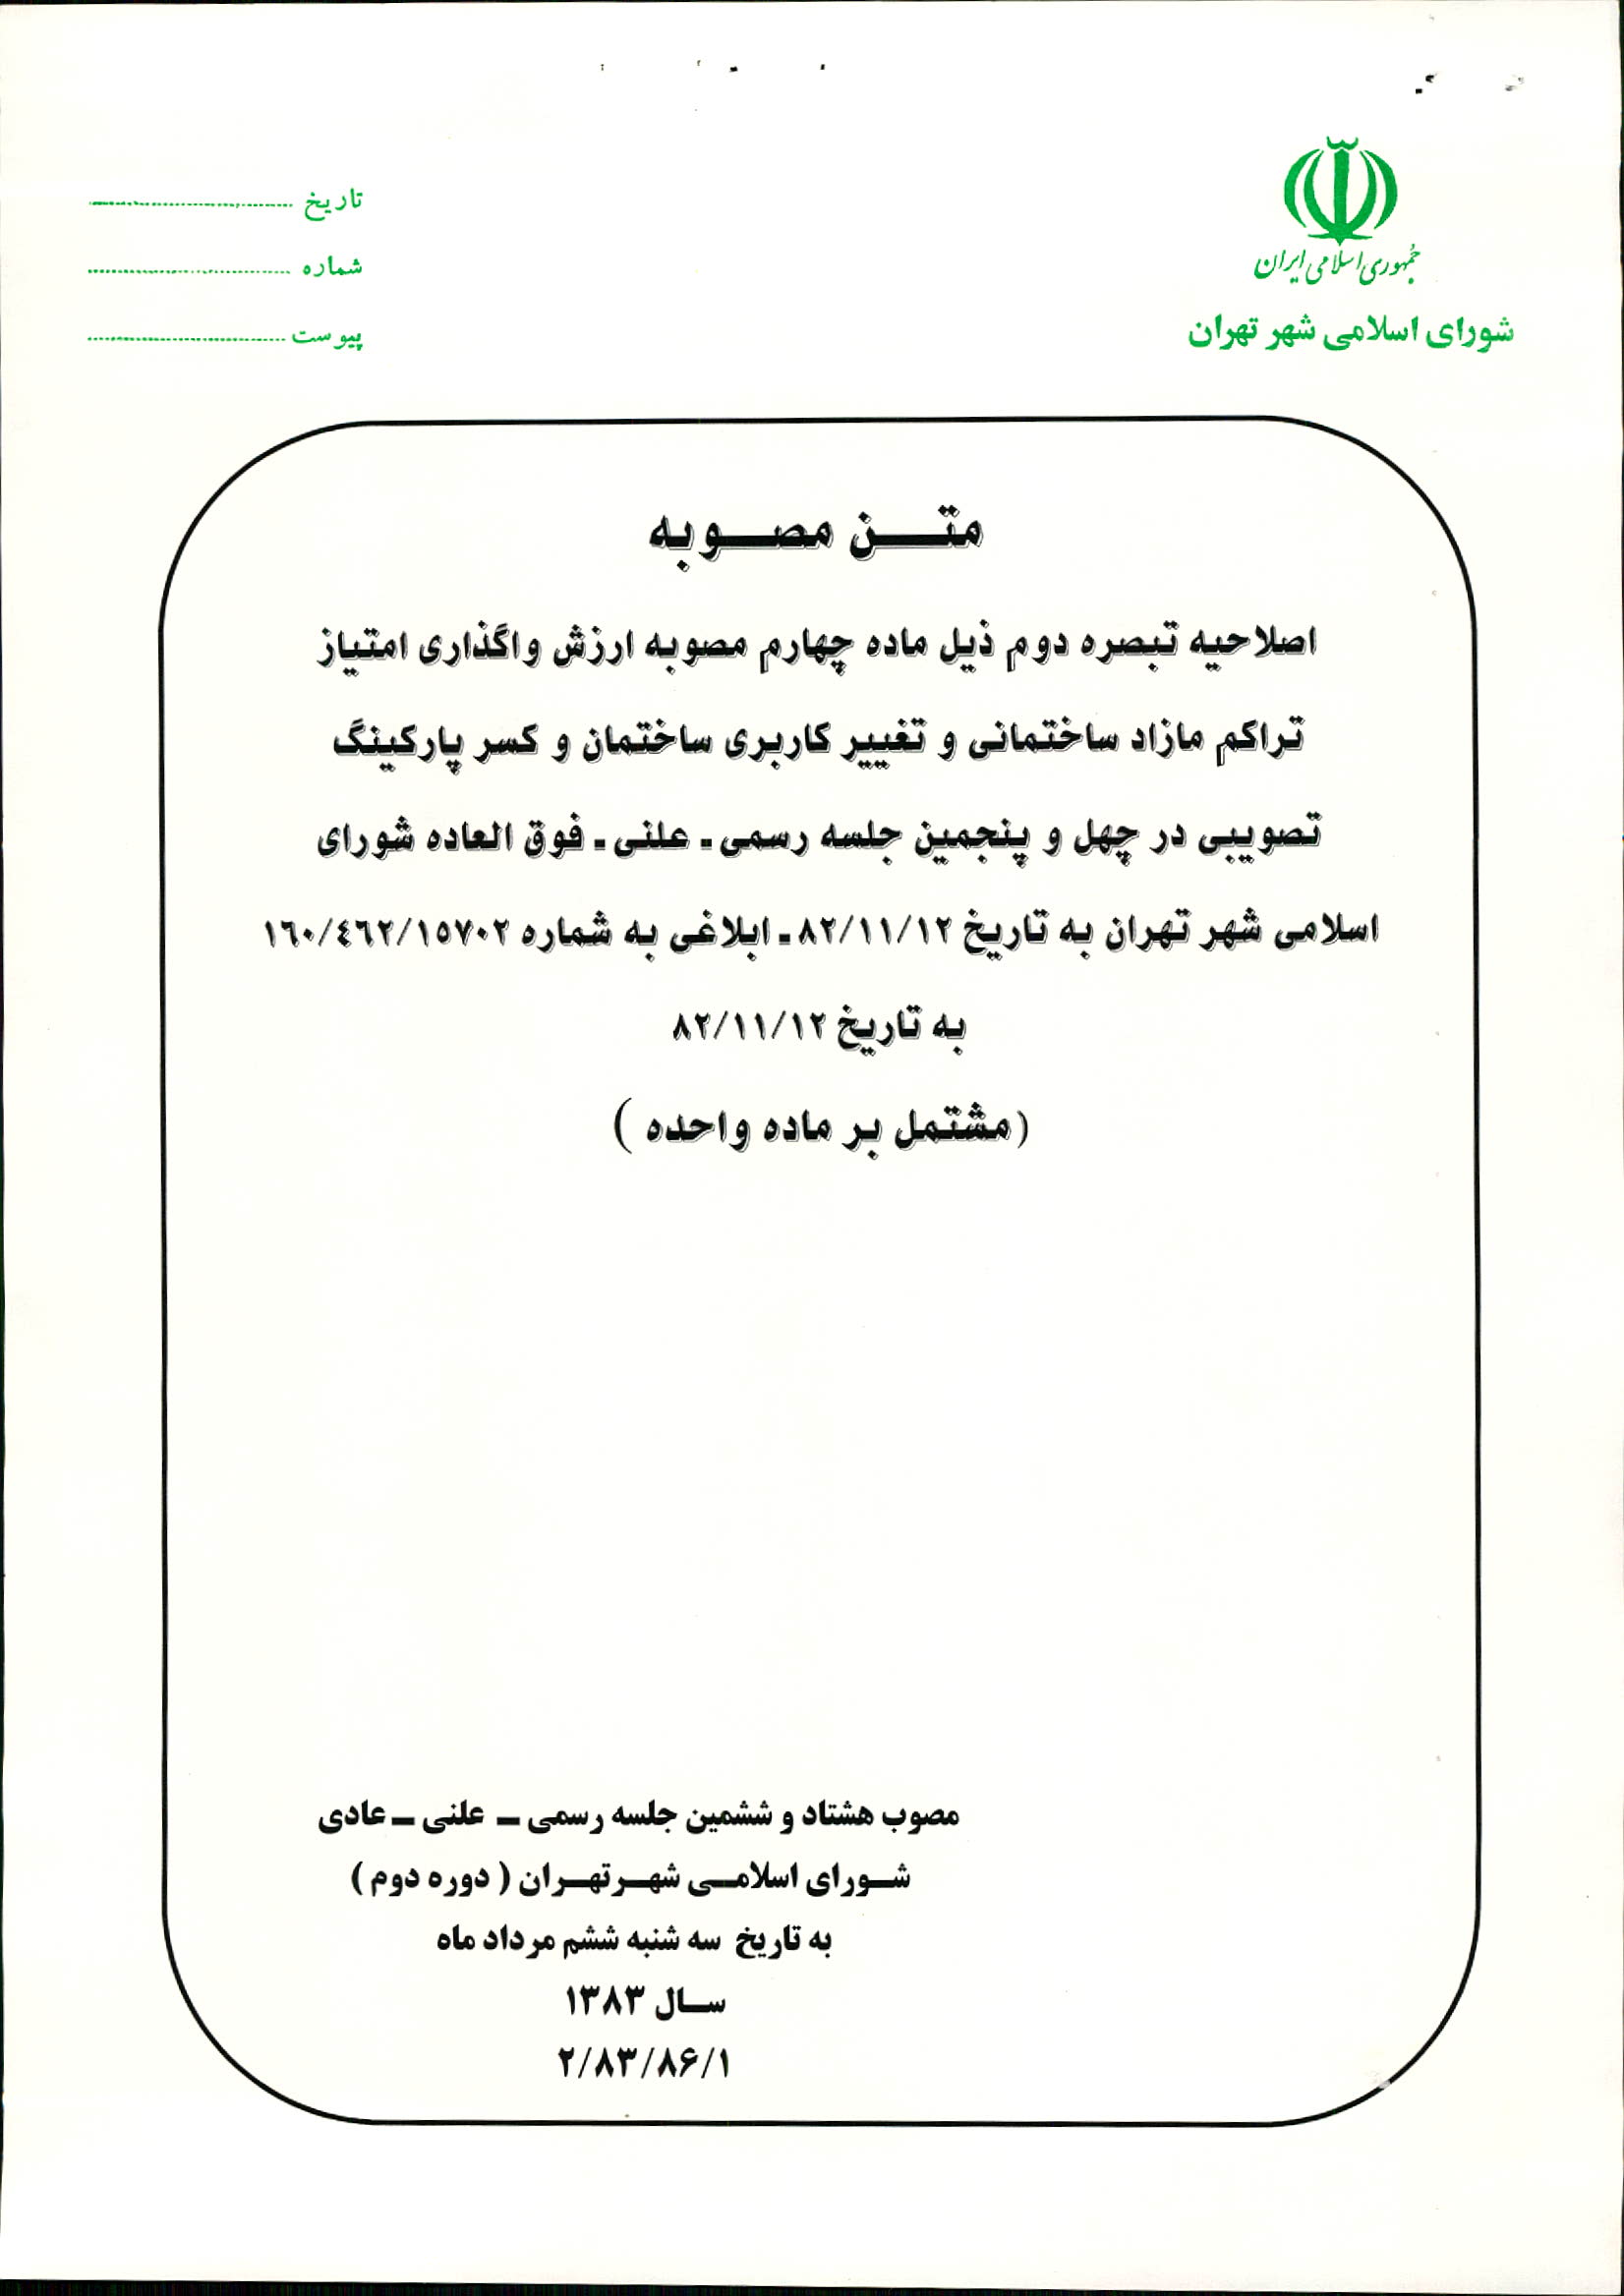 جمهوری اسلامی ایران
شورای اسلامی شهر تهران
تاریخ
شماره
پیوست
متـــن مصـــوبه
اصلاحیه تبصره دوم ذیل ماده چهارم مصوبه ارزش واگذاری امتیاز
تراکم مازاد ساختمانی و تغییر کاربری ساختمان و کسر پارکینگ
تصویبی در چهل و پنجمین جلسه رسمی ـ علنی ـ فوق العاده شورای
اسلامی شهر تهران به تاریخ ۸۲/۱۱/۱۲ ـ ابلاغی به شماره ۱۶۰/۴۶۲/۱۵۷۰۲
به تاریخ ۸۲/۱۱/۱۲
(مشتمل بر ماده واحده )
مصوب هشتاد و ششمین جلسه رسمی ــ علنی ــ عادی
شــورای اسلامــی شهــرتهــران ( دوره دوم )
به تاریخ سه شنبه ششم مرداد ماه
ســال ۱۳۸۳
۲/۸۳/۸۶/۱